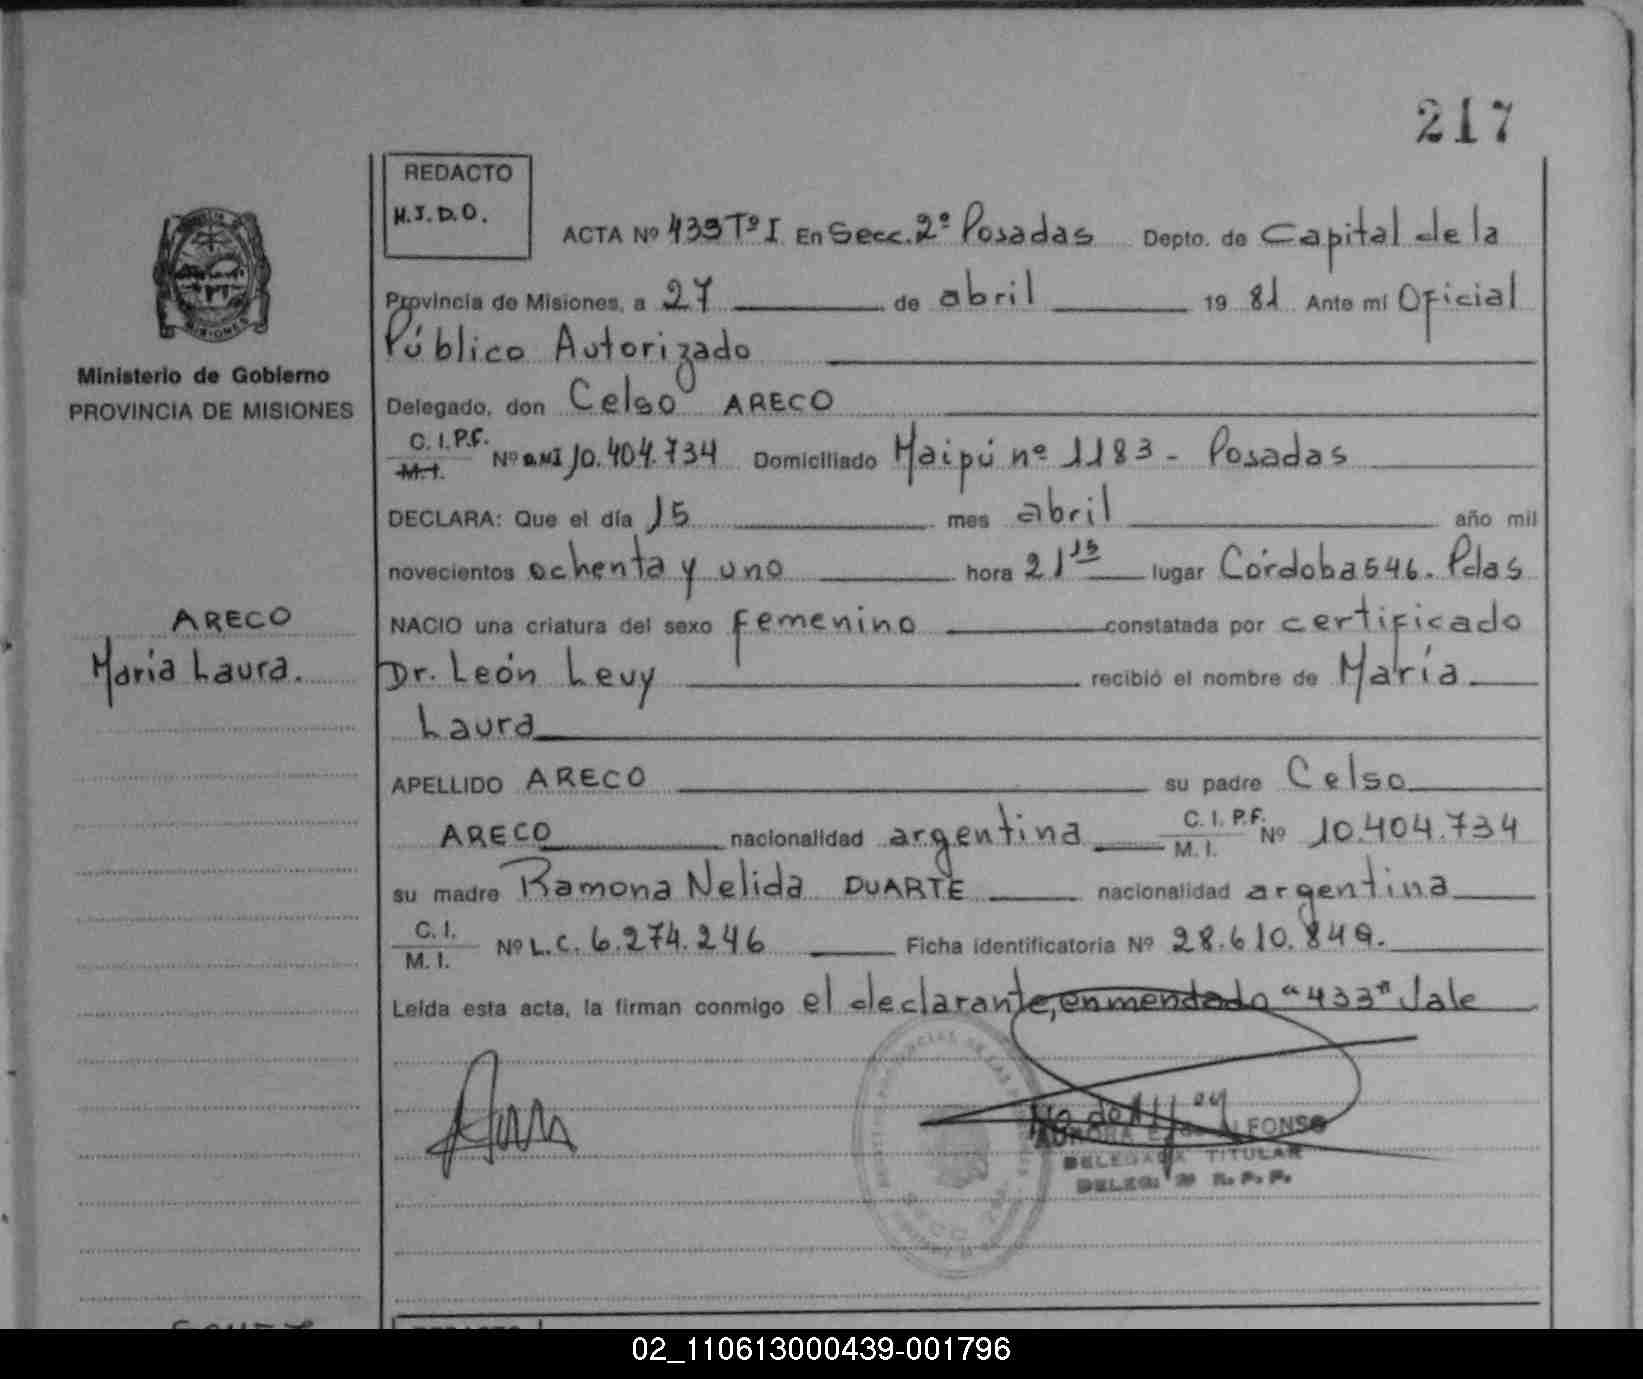 217
REDACTO
M.J.D.O.
ACTA Nº 433 Tº I En Secc. 2º Posadas Depto. de Capital de la
Provincia de Misiones, a 27 de abril 19 81 Ante mi Oficial
Público Autorizado
Ministerio de Gobierno
PROVINCIA DE MISIONES
Delegado, don Celso ARECO
C. I. P.F. M.I. Nº D.M.I 10.404.734 Domiciliado Maipú nº 1183 - Posadas
DECLARA: Que el día 15 mes abril año mil
novecientos ochenta y uno hora 21 15 lugar Córdoba 546. Pdas
ARECO
Maria Laura.
NACIO una criatura del sexo femenino constatada por certificado
Dr. León Levy recibió el nombre de María
Laura
APELLIDO ARECO su padre Celso
ARECO nacionalidad argentina C. I. P.F. M. I. Nº 10.404.734
su madre Ramona Nelida DUARTE nacionalidad argentina
C. I. M. I. Nº L.C. 6.274.246 Ficha identificatoria Nº 28.610.849.
Leída esta acta, la firman conmigo el declarante, enmendado "433" Vale
DELEGADA TITULAR
02_110613000439-001796